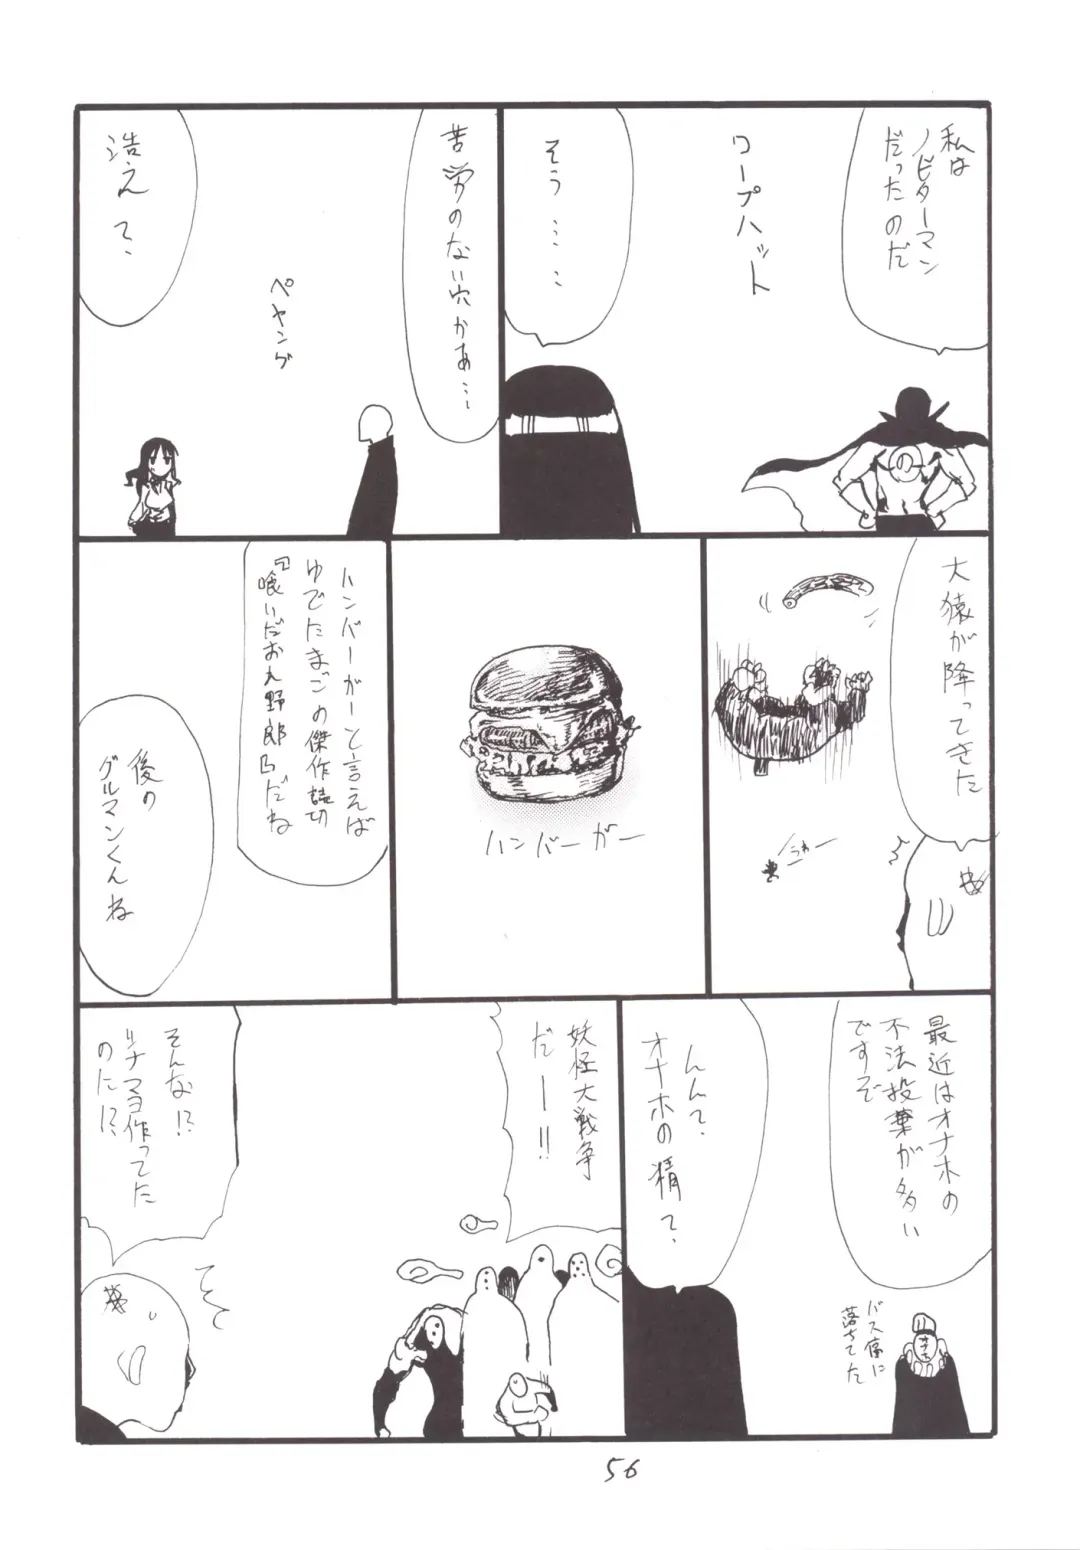 私は
ノビターマン
だったのだ
ワープハット
そう……
苦労のない穴かぁ…
ペヤング
浩えて
大猿が降ってきた
うわー
ハンバーガー
ハンバーガーと言えば
ゆでたまごの傑作読切
『喰いだおれ野郎』だね
後の
グルマンくんね
最近はオナホの
不法投棄が多い
ですぞ
バス停に
落ちてた
んんて、
オナホの精て、
妖怪大戦争
だー!!
そんな!?
ツナマヨ作ってた
のに!?
56